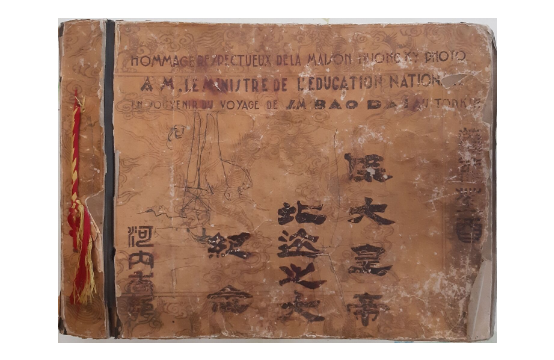 HOMMAGE RESPECTUEUX DE LA MAISON HUONG KY PHOTO
A M. LE MINISTRE DE L'EDUCATION NATION
EN SOUVENIR DU VOYAGE DE S.M BAO DAI AU TONKIN
保大皇帝
北巡之大
紀念
河内